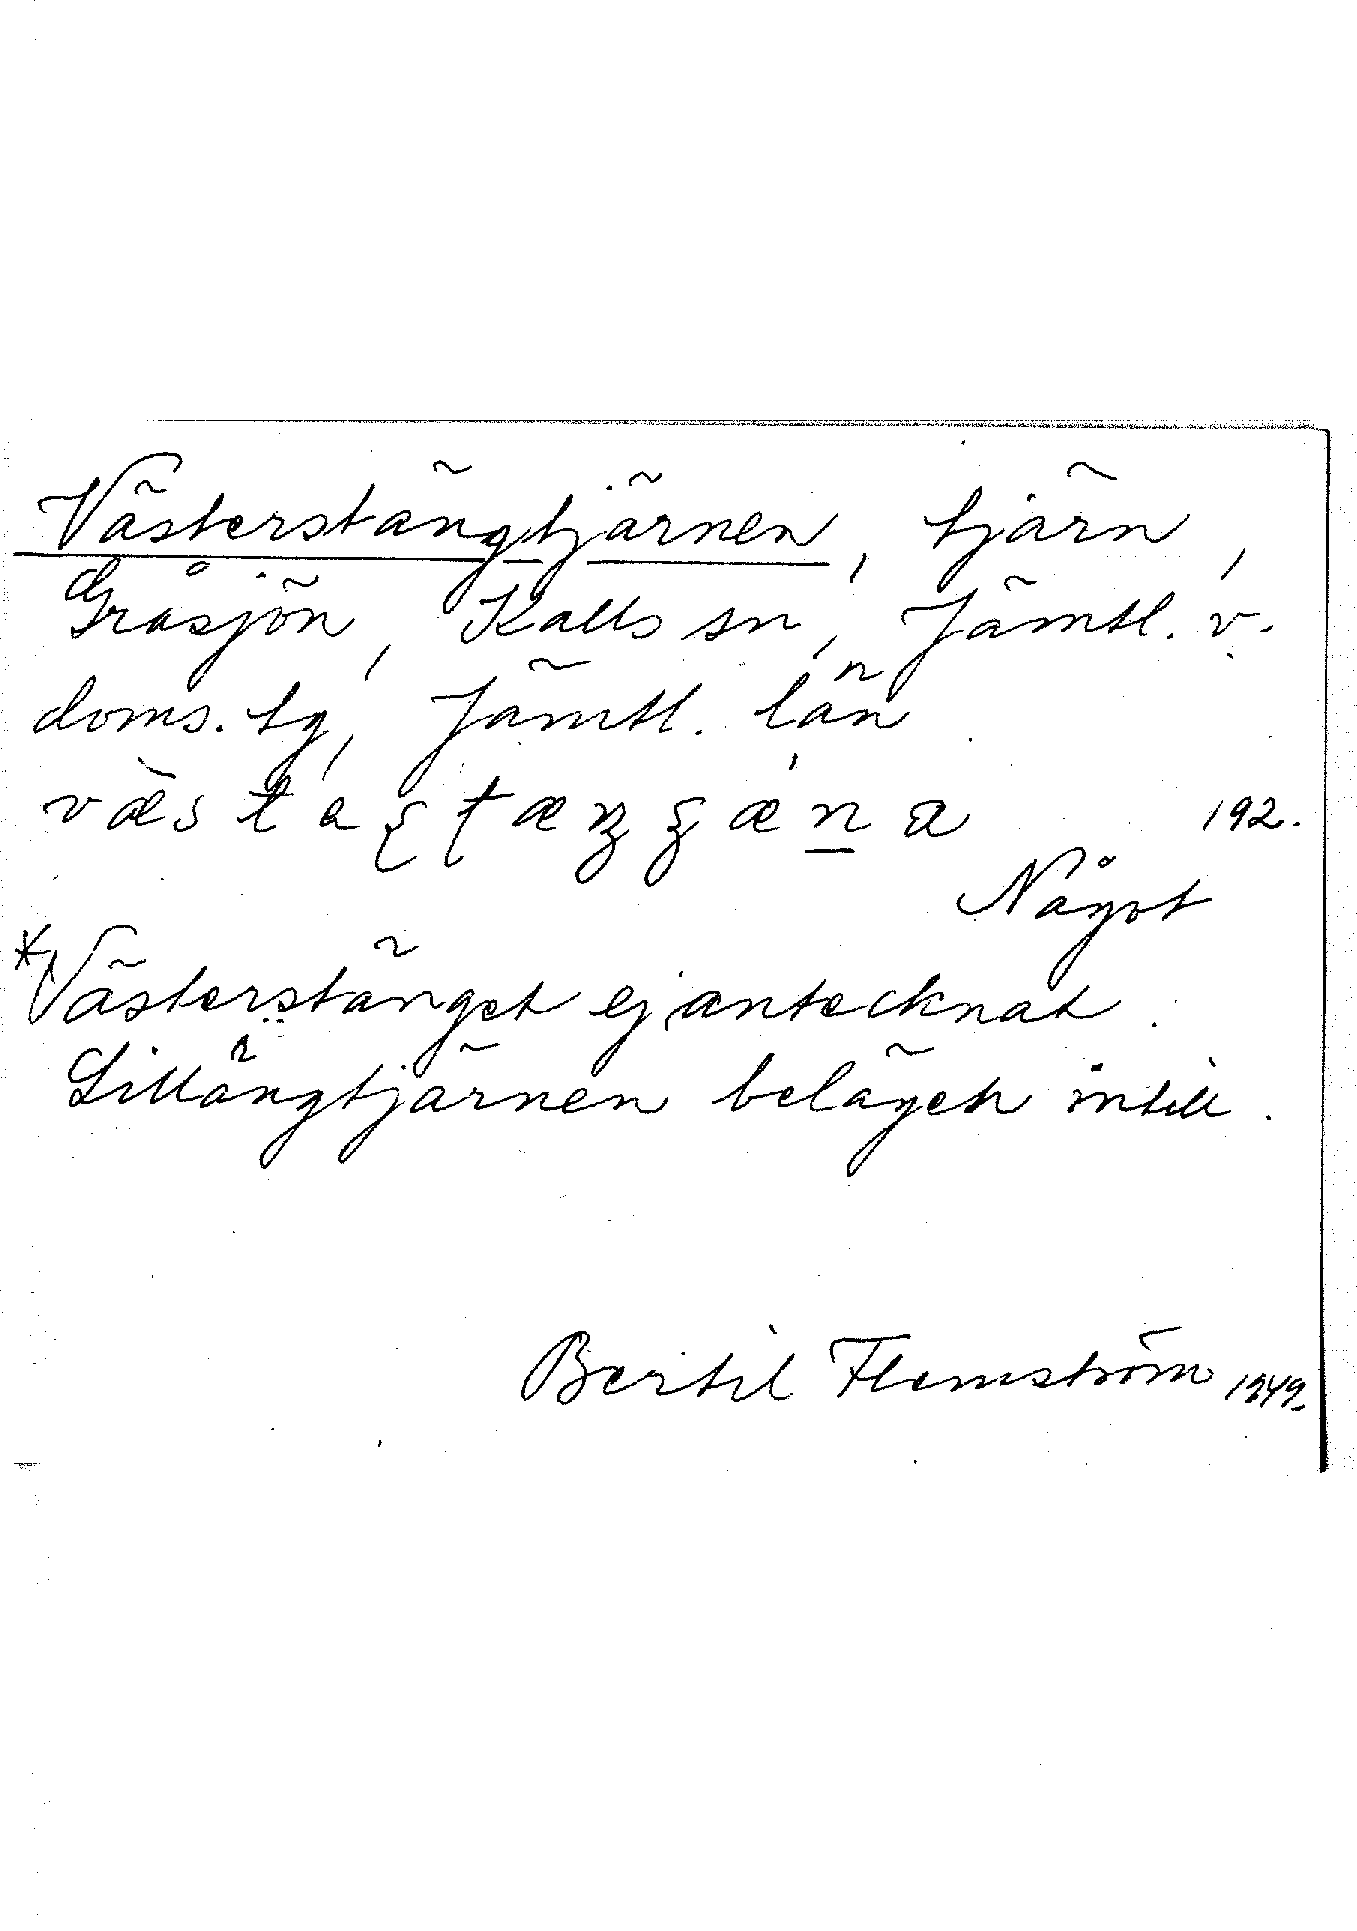 Västerstängtjärnen, tjärn,
Gråsjön, Kalls sn, Jämtl. v.
doms. tg, Jämtl. län
192.
Något
*Västerstänget ej antecknat.
Lillängtjärnen belägen intill.
Bertil Flemström 1949.